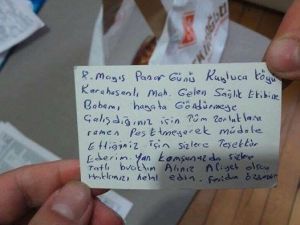 8. Mayıs Pazar Günü Kuşluca Köyü
Karahasanlı Mah. Gelen Sağlık Ekibine
Babamı hayata Döndürmeye
Çalışdığınız için Tüm zorluklara
remen Pes Etmeyerek müdale
Ettiğiniz için sizlere Teşekür
Ederim. Yan komşunuzda sizlere
Tatlı bıraktım Alınız Afiyet olsun
Hakkınızı helal edin. Feridun